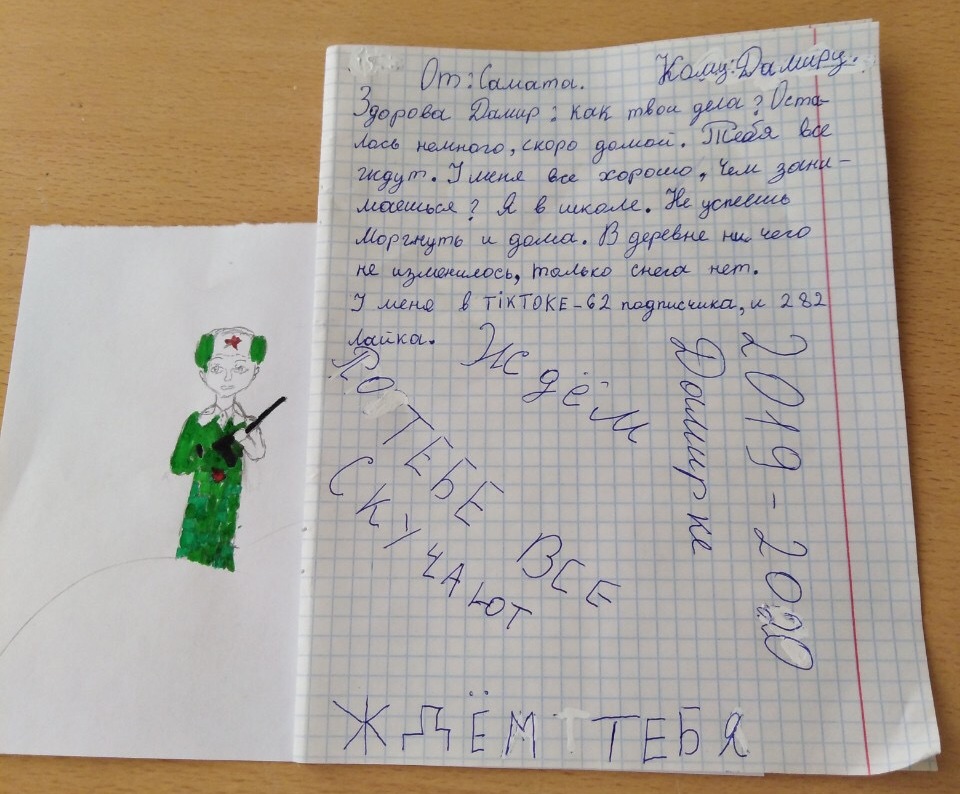 От: Самата. Кому: Дамиру.
Здорова Дамир: как твои дела? Оста-
лось немного, скоро домой. Тебя все
ждут. У меня все хорошо, Чем зани-
маешься? Я в школе. Не успеешь
моргнуть и дома. В деревне ни чего
не изменилось, только снега нет.
У меня в TikTOKE-62 подписчика, и 282
лайка.
Ждём
ПО ТЕБЕ ВСЕ
СКУЧАЮТ
Домирке
2019-2020
ЖДЁМ ТЕБЯ